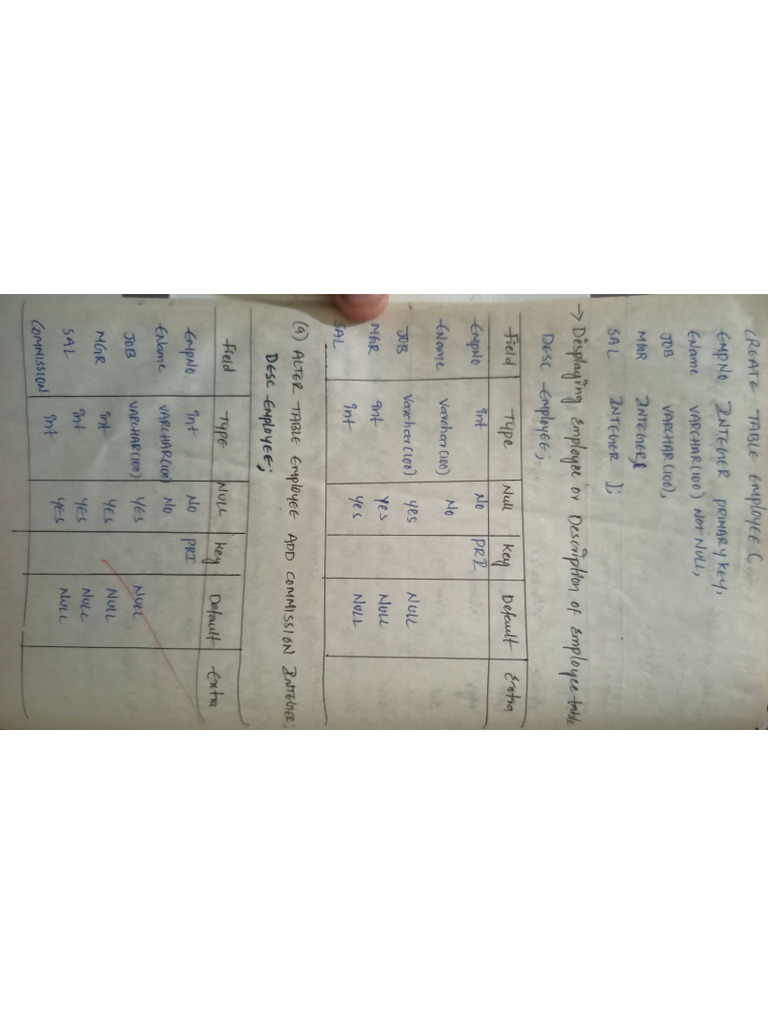 CREATE TABLE Employee (
EmpNo INTEGER PRIMARY KEY,
EName VARCHAR(100) Not NULL,
JOB VARCHAR(100),
MGR INTEGER,
SAL INTEGER );
→ Displaying Employee or Description of Employee table
Desc Employee;
Field Type Null Key Default Extra
EmpNo int No PRI
EName varchar(100) No
JOB varchar(100) yes NULL
MGR int yes NULL
SAL int yes NULL
(a) ALTER TABLE Employee ADD COMMISSION INTEGER;
Desc Employee;
Field Type NULL Key Default Extra
EmpNo int No PRI
EName VARCHAR(100) No
JOB VARCHAR(100) yes NULL
MGR int yes NULL
SAL int yes NULL
COMMISSION int yes NULL